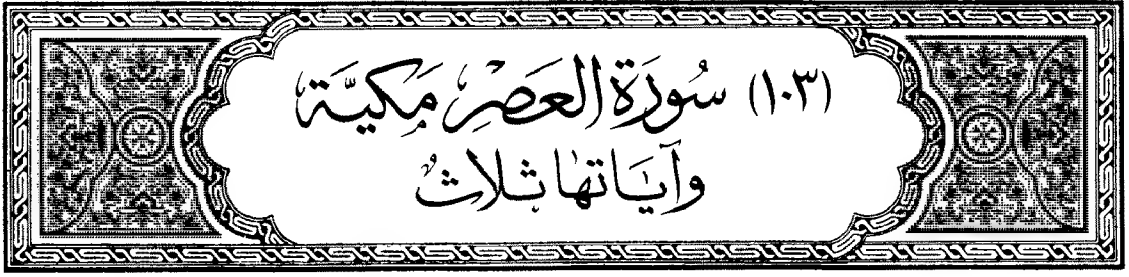 (١٠٣) سُورَةُ العَصْرِ مَكيَّة
وآيَاتهَا ثلاثٌ